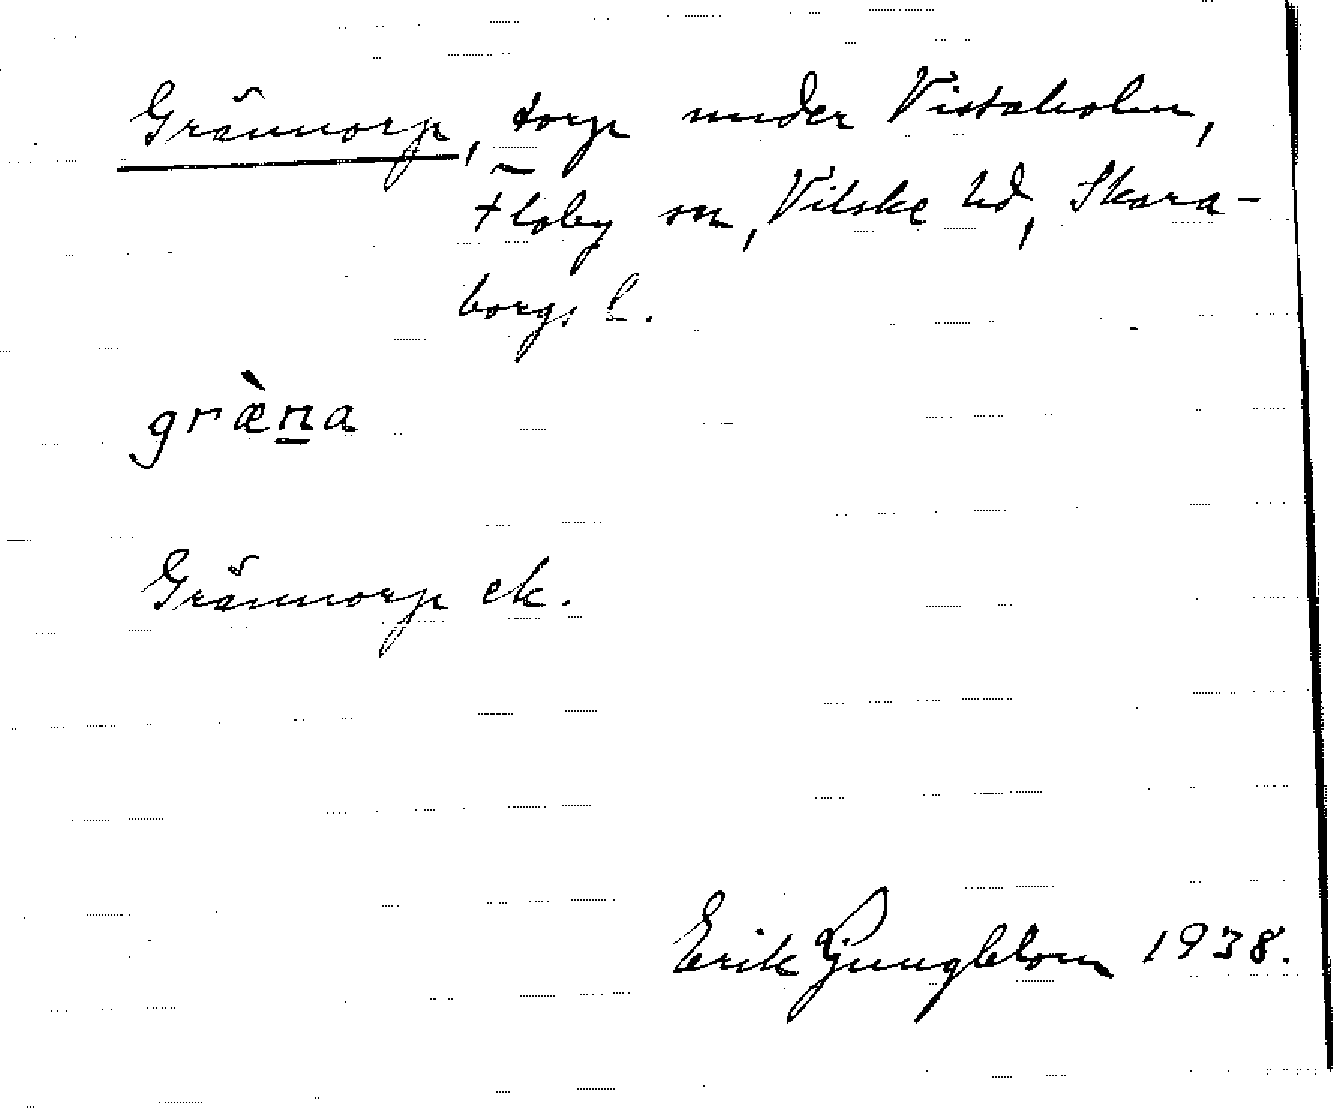 Grännorp, torp under Vistaholm,
Floby sn, Vilske hd, Skara-
borgs l.
græ̀n̲a
Grännorp ek.
Erik Ljungblom 1938.